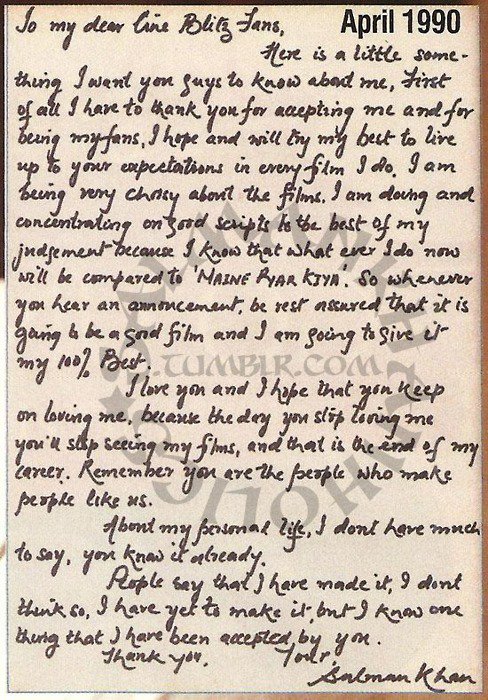 April 1990
To my dear Cine Blitz Fans,
Here is a little some-
thing I want you guys to know about me, First
of all I have to thank you for accepting me and for
being my fans, I hope and will try my best to live
up to your expectations in every film I do. I am
being very choisy about the films, I am doing and
concentrating on good scripts to the best of my
judgement because I know that what ever I do now
will be compared to 'MAINE PYAR KIYA'. So whenever
you hear an annoncement, be rest assured that it is
going to be a good film and I am going to give it
my 100% Best.
I love you and I hope that you keep
on loving me, because the day you stop loving me
you'll stop seeing my films, and that is the end of my
career. Remember you are the people who make
people like us.
About my personal life, I dont have much
to say, you know it already.
People say that I have made it, I dont
think so, I have yet to make it, but I know one
thing that I have been accepted by you.
Thank you. Your
Salman Khan
.TUMBLR.COM